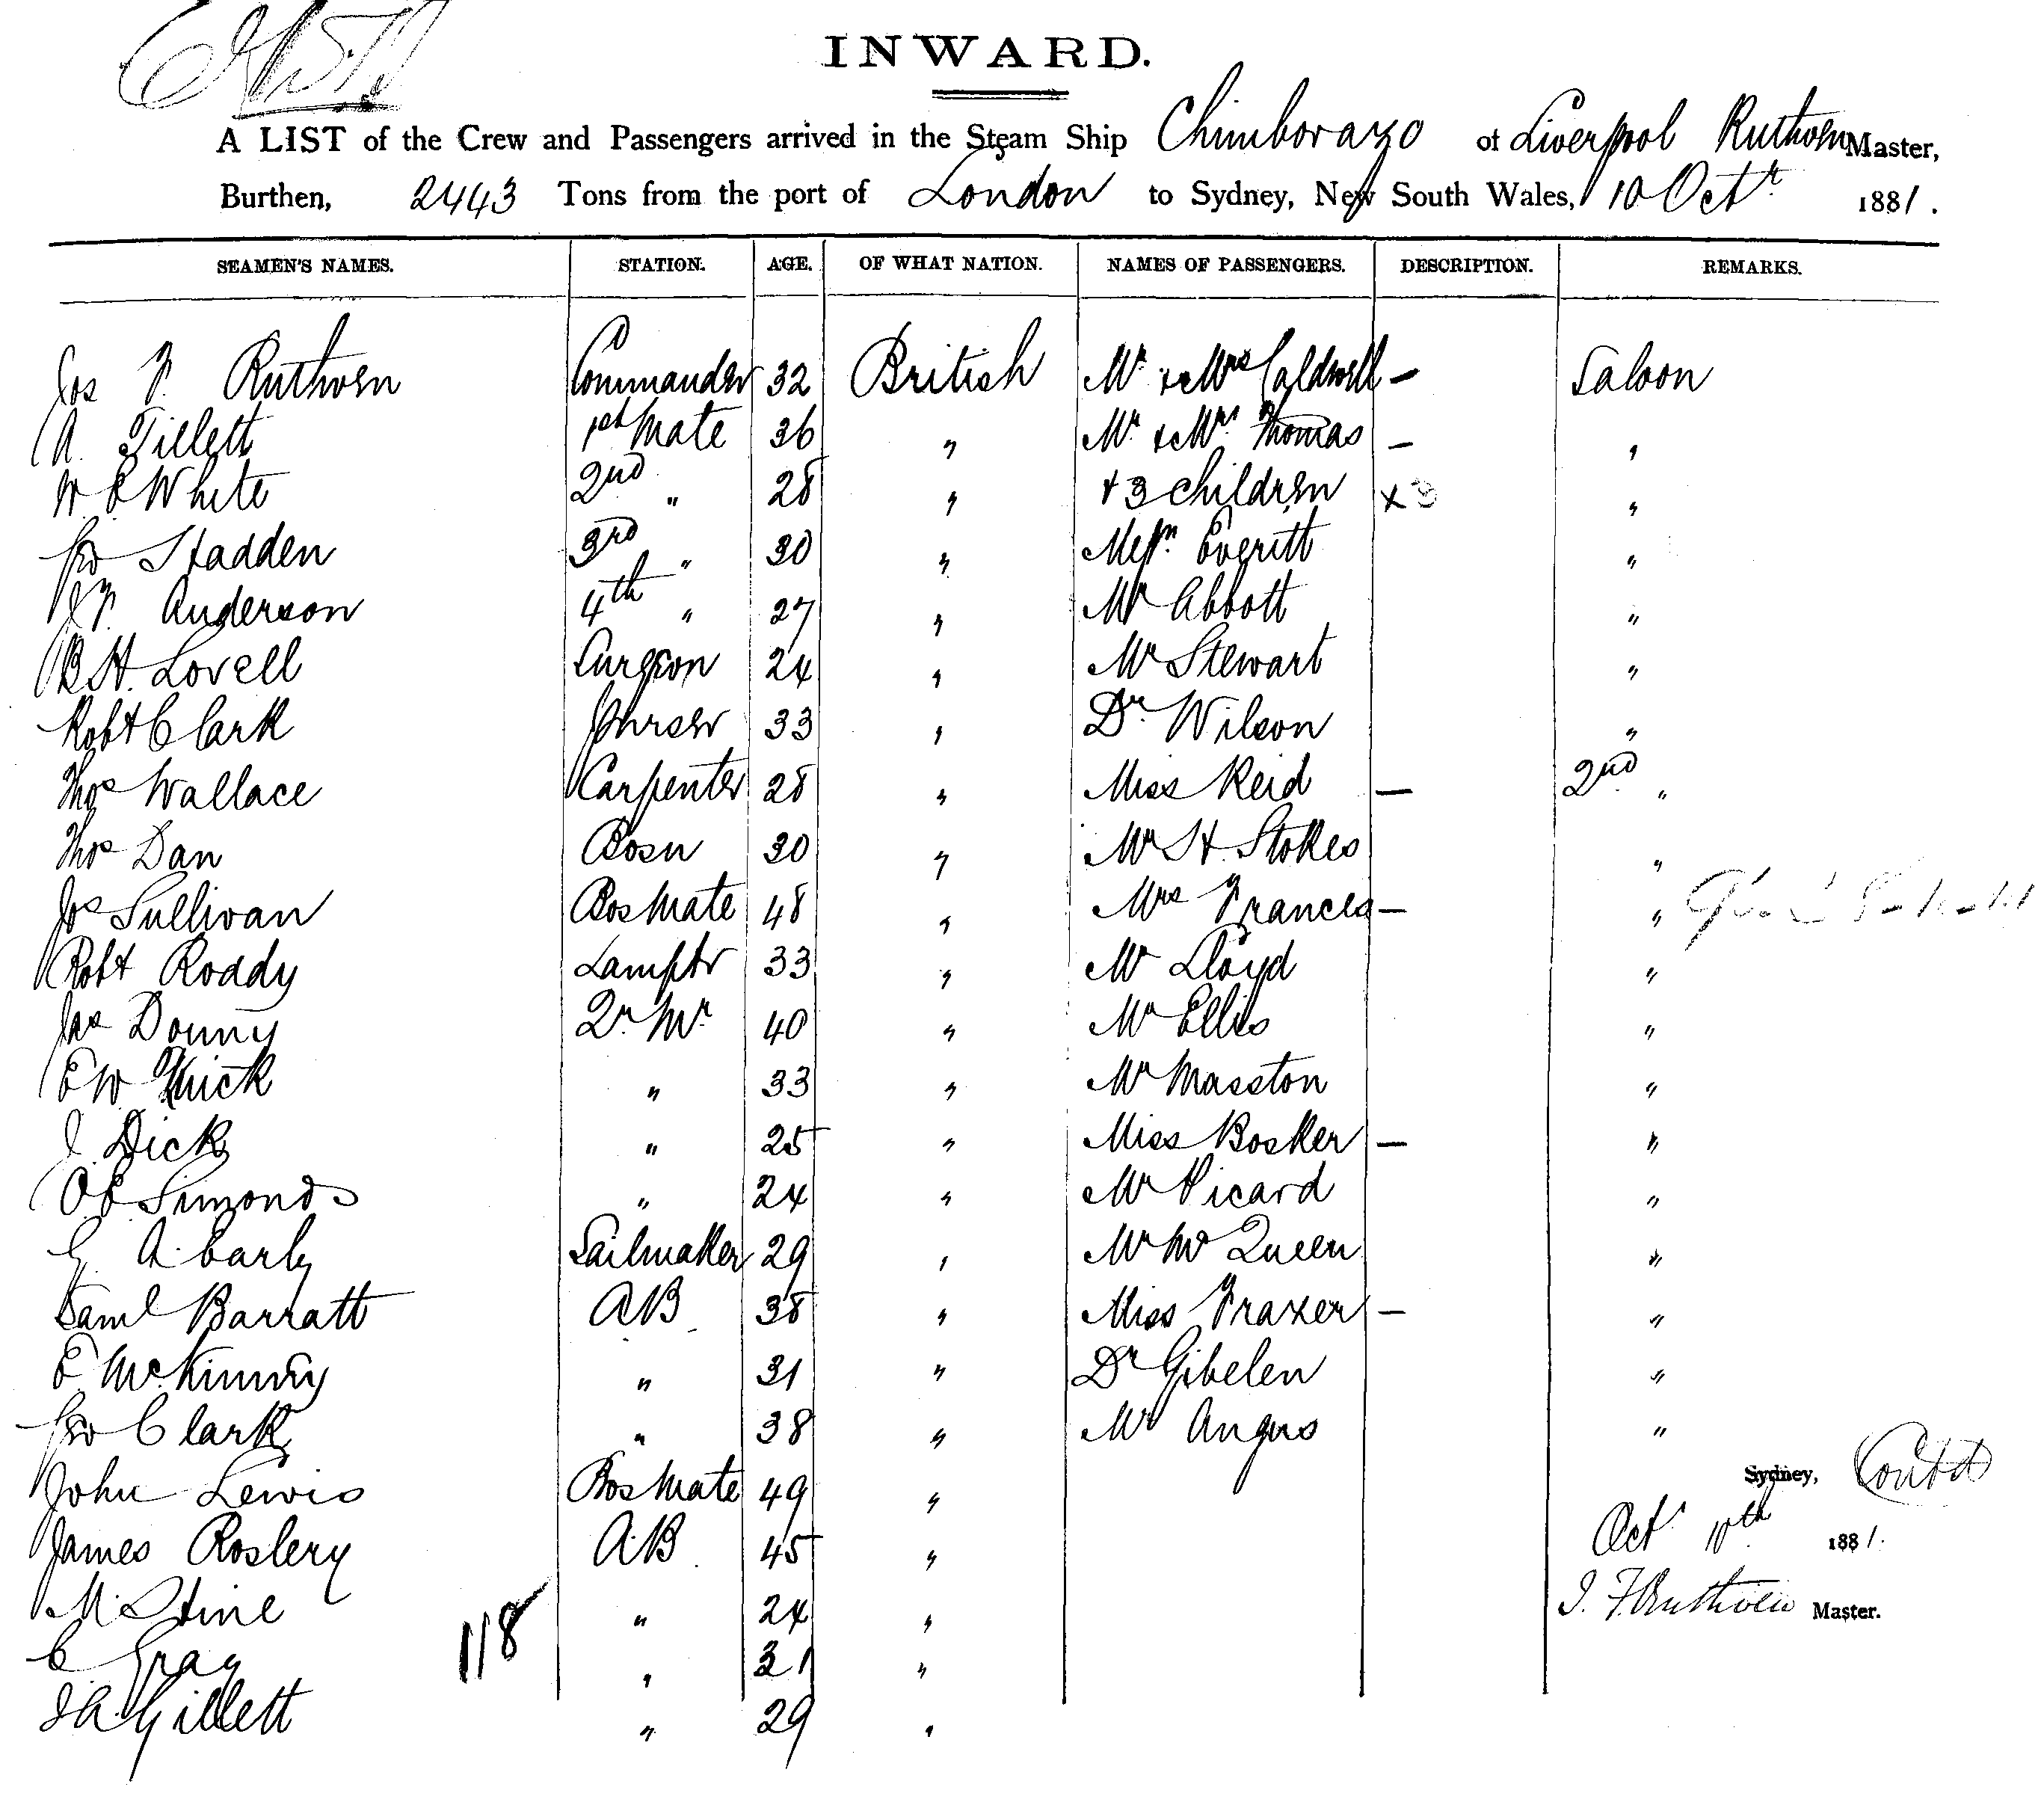 INWARD.
A LIST of the Crew and Passengers arrived in the Steam Ship Chimborazo of Liverpool Ruthven Master,
Burthen, 2443 Tons from the port of London to Sydney, New South Wales, 10 Octr 1881.
SEAMEN'S NAMES. STATION. AGE. OF WHAT NATION. NAMES OF PASSENGERS. DESCRIPTION. REMARKS.
Jos F. Ruthven Commander 32 British Mr & Mrs Caldwell — Saloon
A. Tillett 1st Mate 36 " Mr & Mrs Thomas — "
W. E White 2nd " 28 " + 3 children x 3 "
Geo Hadden 3rd " 30 " Everitt "
J F. Anderson 4th " 27 " Mr Abbott "
B. H. Lovell Surgeon 24 " Mr Stewart "
Robt Clark Purser 33 " Dr Wilson "
Thos Wallace Carpenter 28 " Miss Reid — 2nd "
Thos Dan Bosn 30 " Mr H. Stokes "
Jos Sullivan Bos Mate 48 " Mrs Francis — "
Robt Roady Lamptr 33 " Mr Lloyd "
Jas Downy Qr Mr 40 " Mr Ellis "
E W " 33 " Mr Masston "
J. Dick " 25 " Miss Bosker — "
O E Simonds " 24 " Mr Picard "
G A. Early Sailmaker 29 " Mr Mc Queen "
Saml Barratt AB 38 " Miss Frazer — "
E McKinney " 31 " Dr Gibelen "
Geo Clark " 38 " Mr Angus "
John Lewis Bos Mate 49 "
Sydney,
James Roslery A.B. 45 " Octr 10th 1881.
M. Stine " 24 " J. F. Ruthven Master.
C Gray 118 " 31 "
J A Gillett " 29 "